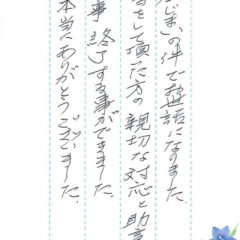 じまいの件でお世話になりました
当をして頂いた方の親切な対応と助言
事終了する事ができました。
本当にありがとうございました。